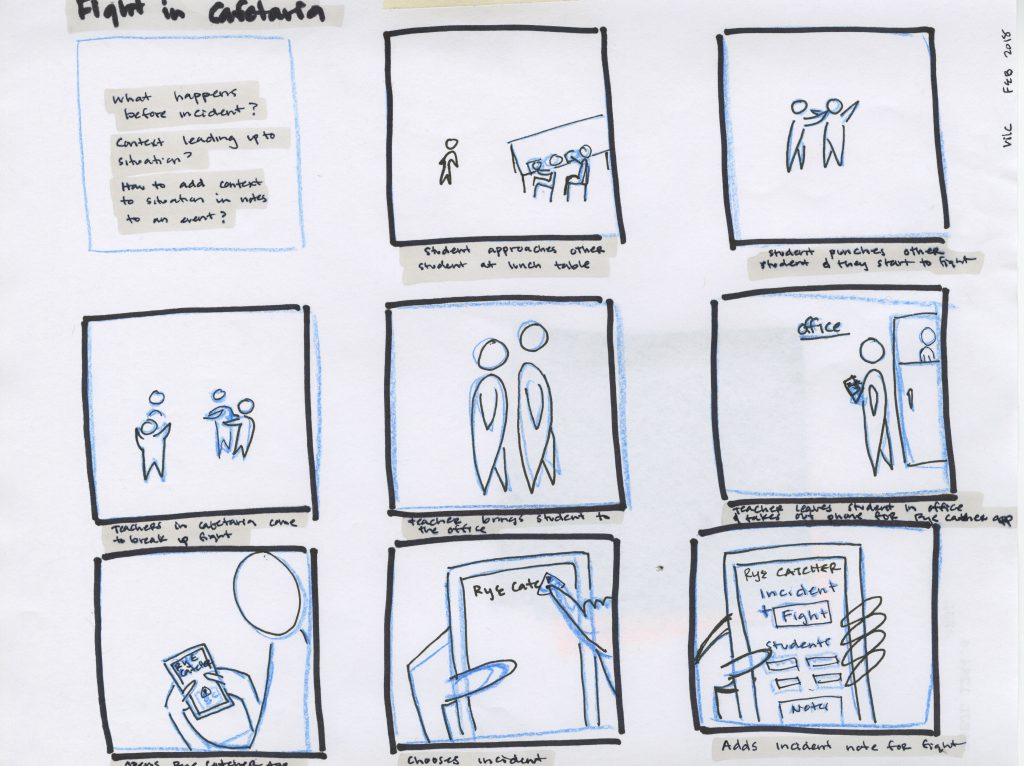 Fight in Cafetaria
VilC FEB 2018
What happens
before incident?
Context leading up to
situation?
How to add context
to situation in notes
to an event?
Student approaches other
student at lunch table
Student punches other
student & they start to fight
Teachers in cafetaria come
to break up fight
Teacher brings student to
the office
office
Teacher leaves student in office
& takes out phone for Rye Catcher app
RYE
Catcher
Opens Rye Catcher app
RYE Catc
Chooses incident
RYE CATCHER
Incident
+ Fight
Students
Notes
Adds incident note for fight